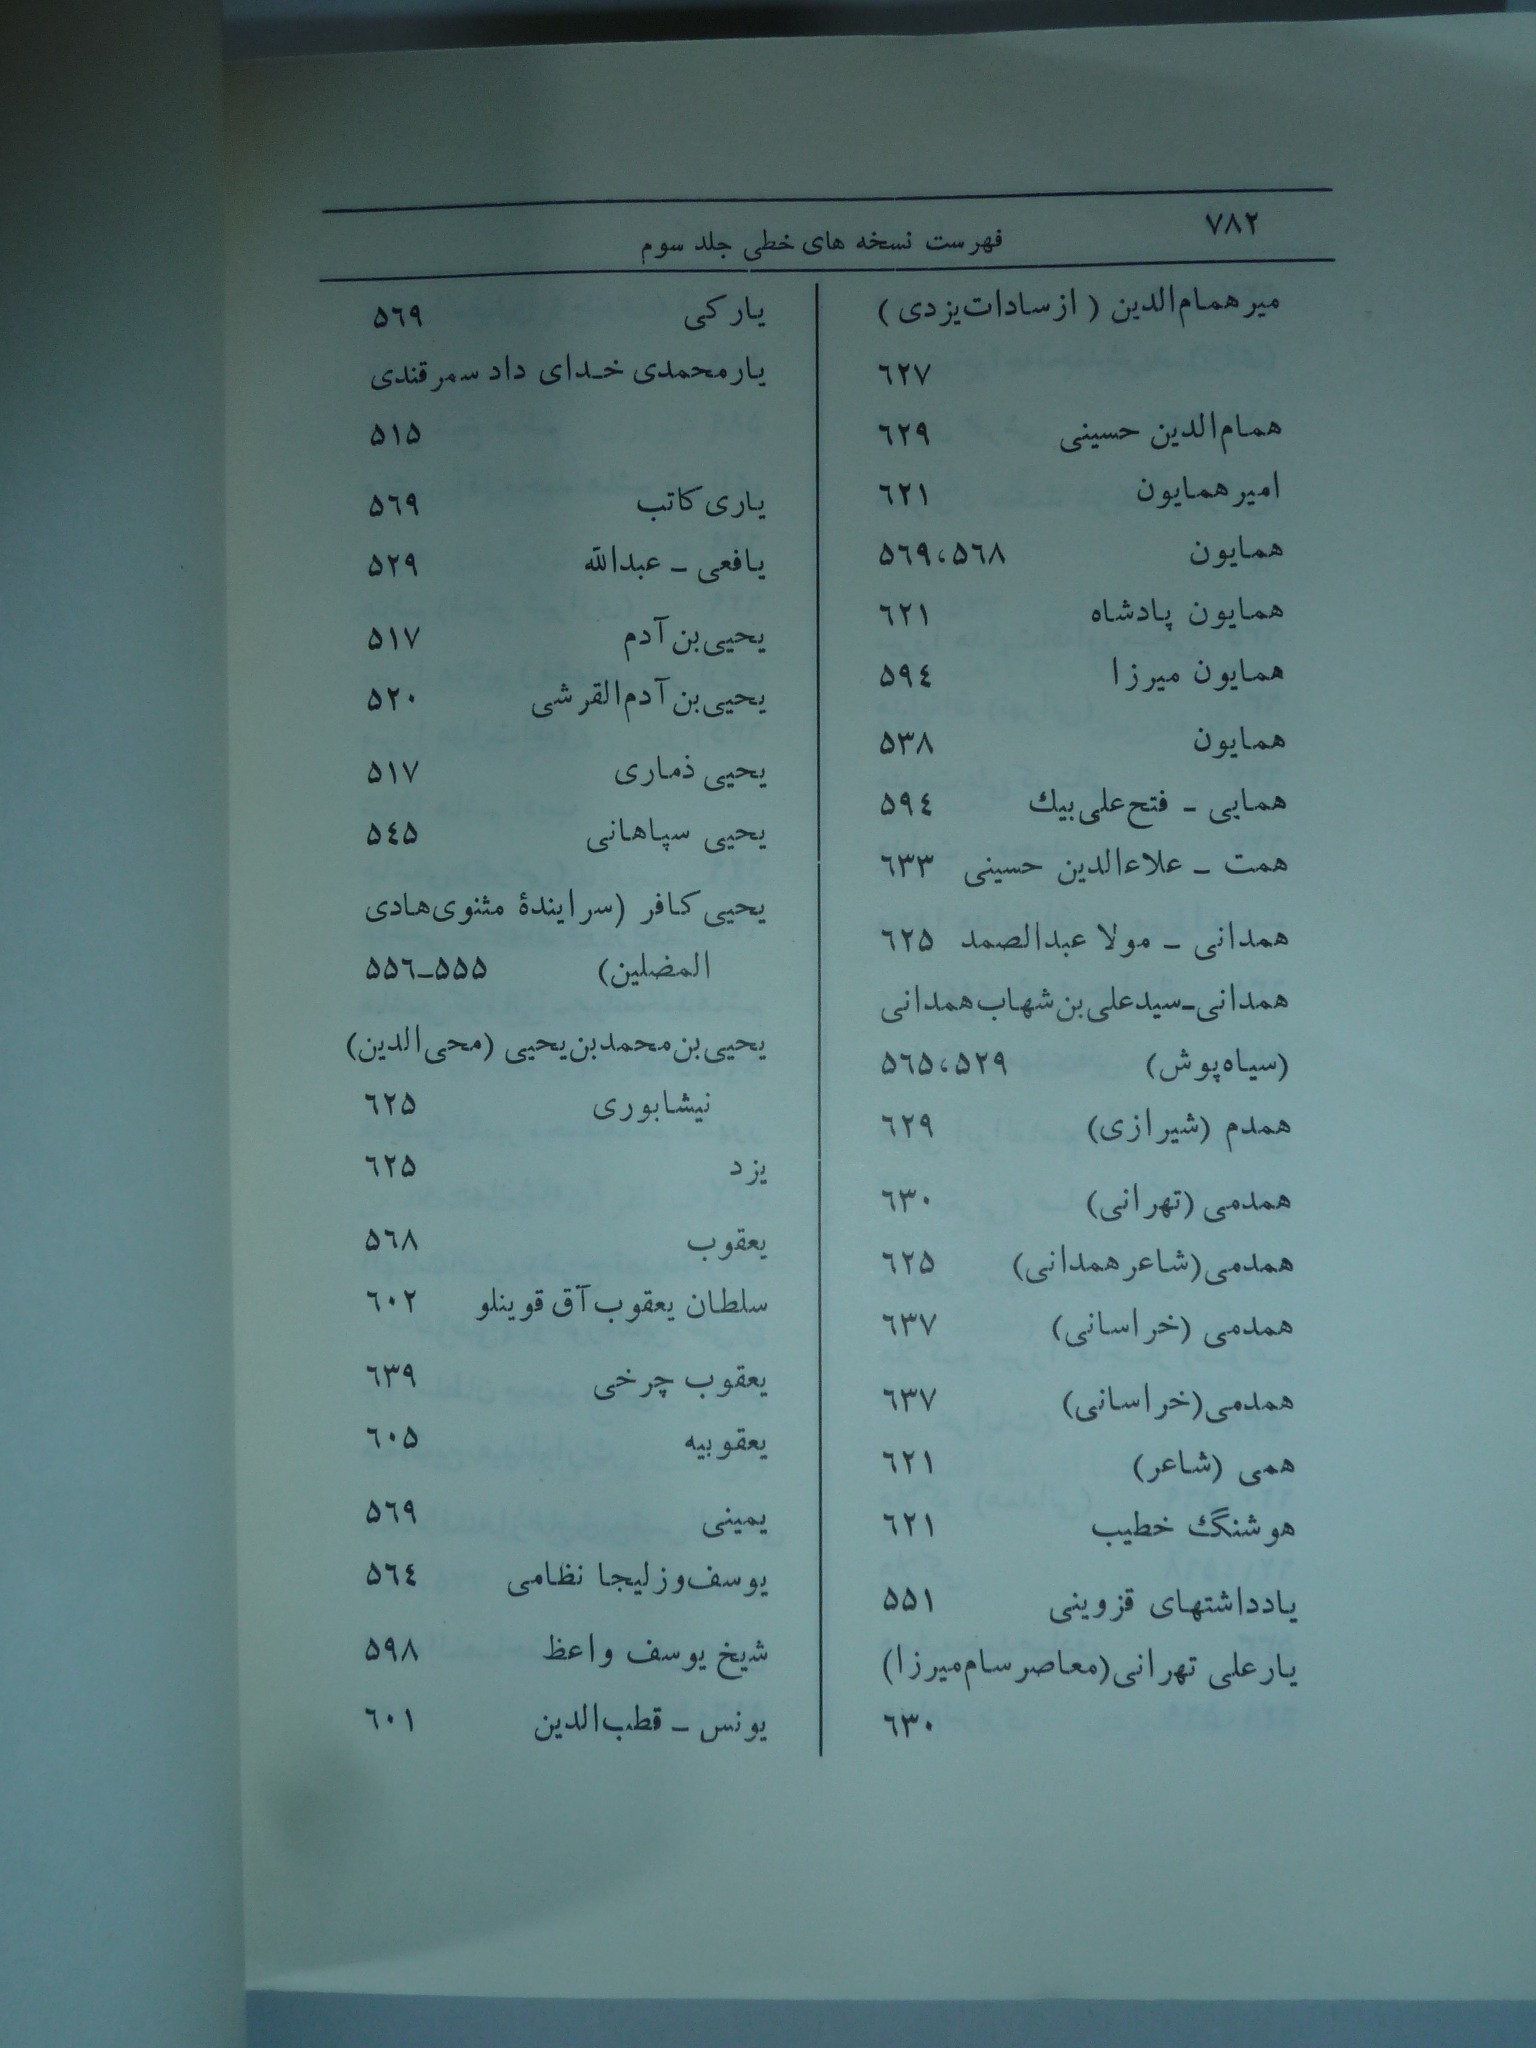 ٧٨٢
فهرست نسخه های خطی جلد سوم
میرهمام‌الدین ( از سادات یزدی )
٦٢٧
همام‌الدین حسینی ٦٢٩
امیرهمایون ٦٢١
همایون ٥٦٨،٥٦٩
همایون پادشاه ٦٢١
همایون میرزا ٥٩٤
همایون ٥٣٨
همایی - فتح‌علی‌بیك ٥٩٤
همت - علاءالدین حسینی ٦٣٣
همدانی - مولا عبدالصمد ٦٢٥
همدانی-سیدعلی‌بن‌شهاب‌همدانی
(سیاه‌پوش) ٥٢٩،٥٦٥
همدم (شیرازی) ٦٢٩
همدمی (تهرانی) ٦٣٠
همدمی(شاعرهمدانی) ٦٢٥
همدمی (خراسانی) ٦٣٧
همدمی(خراسانی) ٦٣٧
همی (شاعر) ٦٢١
هوشنگ خطیب ٦٢١
یادداشتهای قزوینی ٥٥١
یارعلی تهرانی(معاصرسام‌میرزا)
٦٣٠
یارکی ٥٦٩
یارمحمدی خدای داد سمرقندی
٥١٥
یاری‌کاتب ٥٦٩
یافعی - عبدالله ٥٢٩
یحیی‌بن‌آدم ٥١٧
یحیی‌بن‌آدم‌القرشی ٥٢٠
یحیی ذماری ٥١٧
یحیی سپاهانی ٥٤٥
یحیی کافر (سرایندهٔ مثنوی‌هادی
المضلین) ٥٥٥-٥٥٦
یحیی‌بن‌محمدبن‌یحیی (محی‌الدین)
نیشابوری ٦٢٥
یزد ٦٢٥
یعقوب ٥٦٨
سلطان یعقوب آق قوینلو ٦٠٢
یعقوب چرخی ٦٣٩
یعقوبیه ٦٠٥
یمینی ٥٦٩
یوسف‌وزلیجا نظامی ٥٦٤
شیخ یوسف واعظ ٥٩٨
یونس - قطب‌الدین ٦٠١